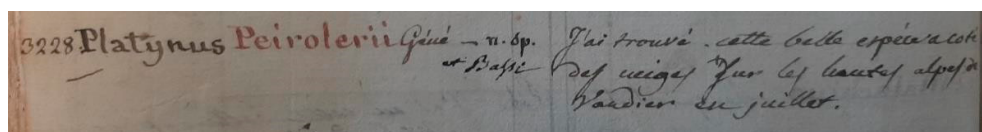 3228. Platynus Peirolerii Géné _ n. sp. J'ai trouvé cette belle espèce a coté
et Bassi des neiges sur les hautes alpes de
Vaudier en juillet.